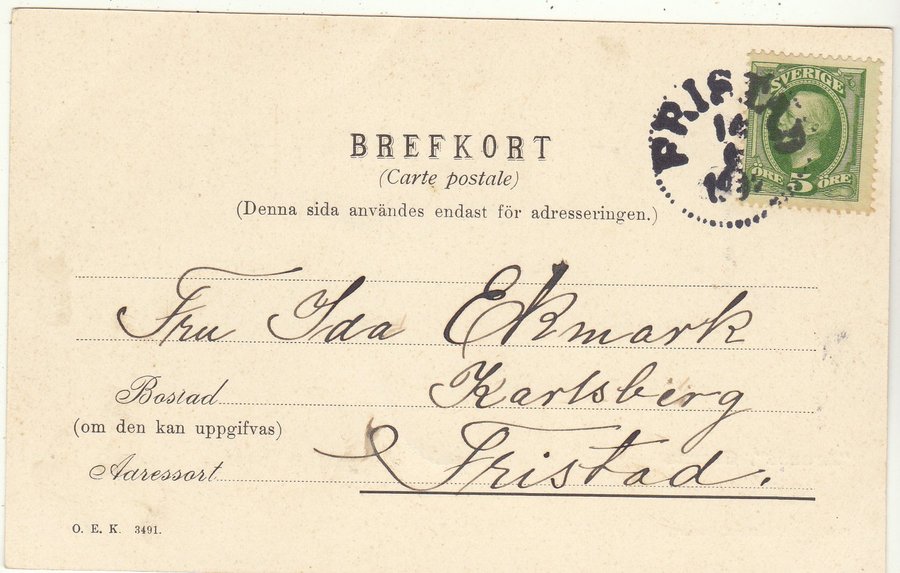 BREFKORT
(Carte postale)
(Denna sida användes endast för adresseringen.)
SVERIGE
ÖRE 5 ÖRE
Fru Ida Ekmark
Bostad Karlsberg
(om den kan uppgifvas)
Adressort Fristad.
O. E. K. 3491.